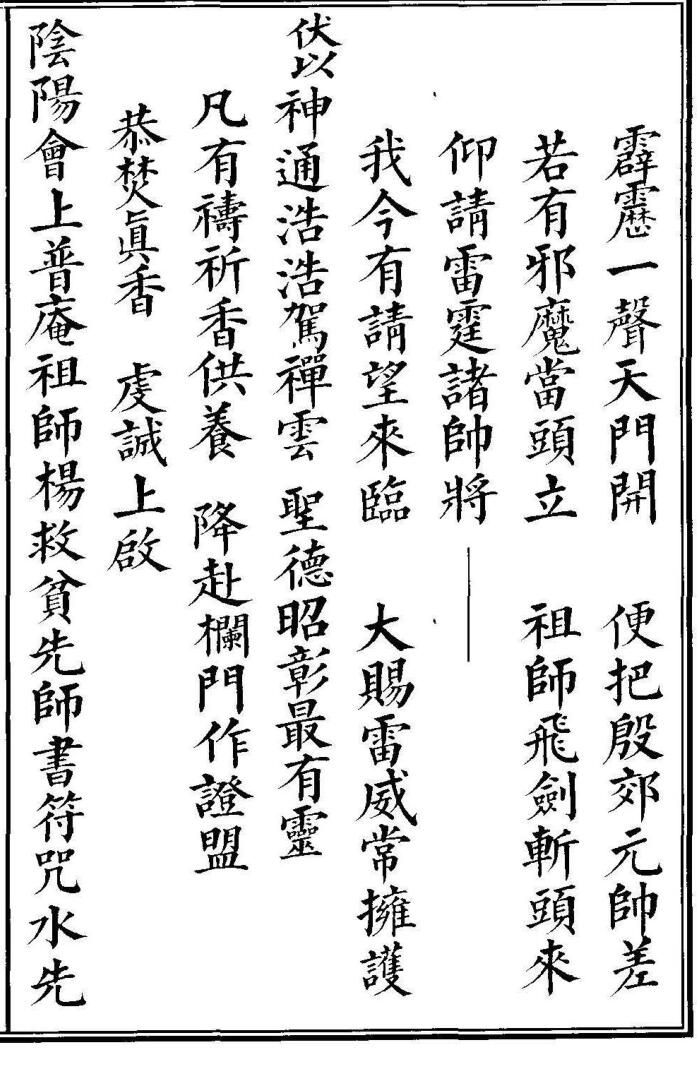 霹靂一聲天門開 便把殷郊元帥差
若有邪魔當頭立 祖師飛劍斬頭來
仰請雷霆諸帥將 ——
我今有請望來臨 大賜雷威常擁護
伏以神通浩浩駕禪雲 聖德昭彰最有靈
凡有禱祈香供養 降赴欄門作證盟
恭焚眞香 虔誠上啟
陰陽會上普庵祖師楊救貧先師書符咒水先